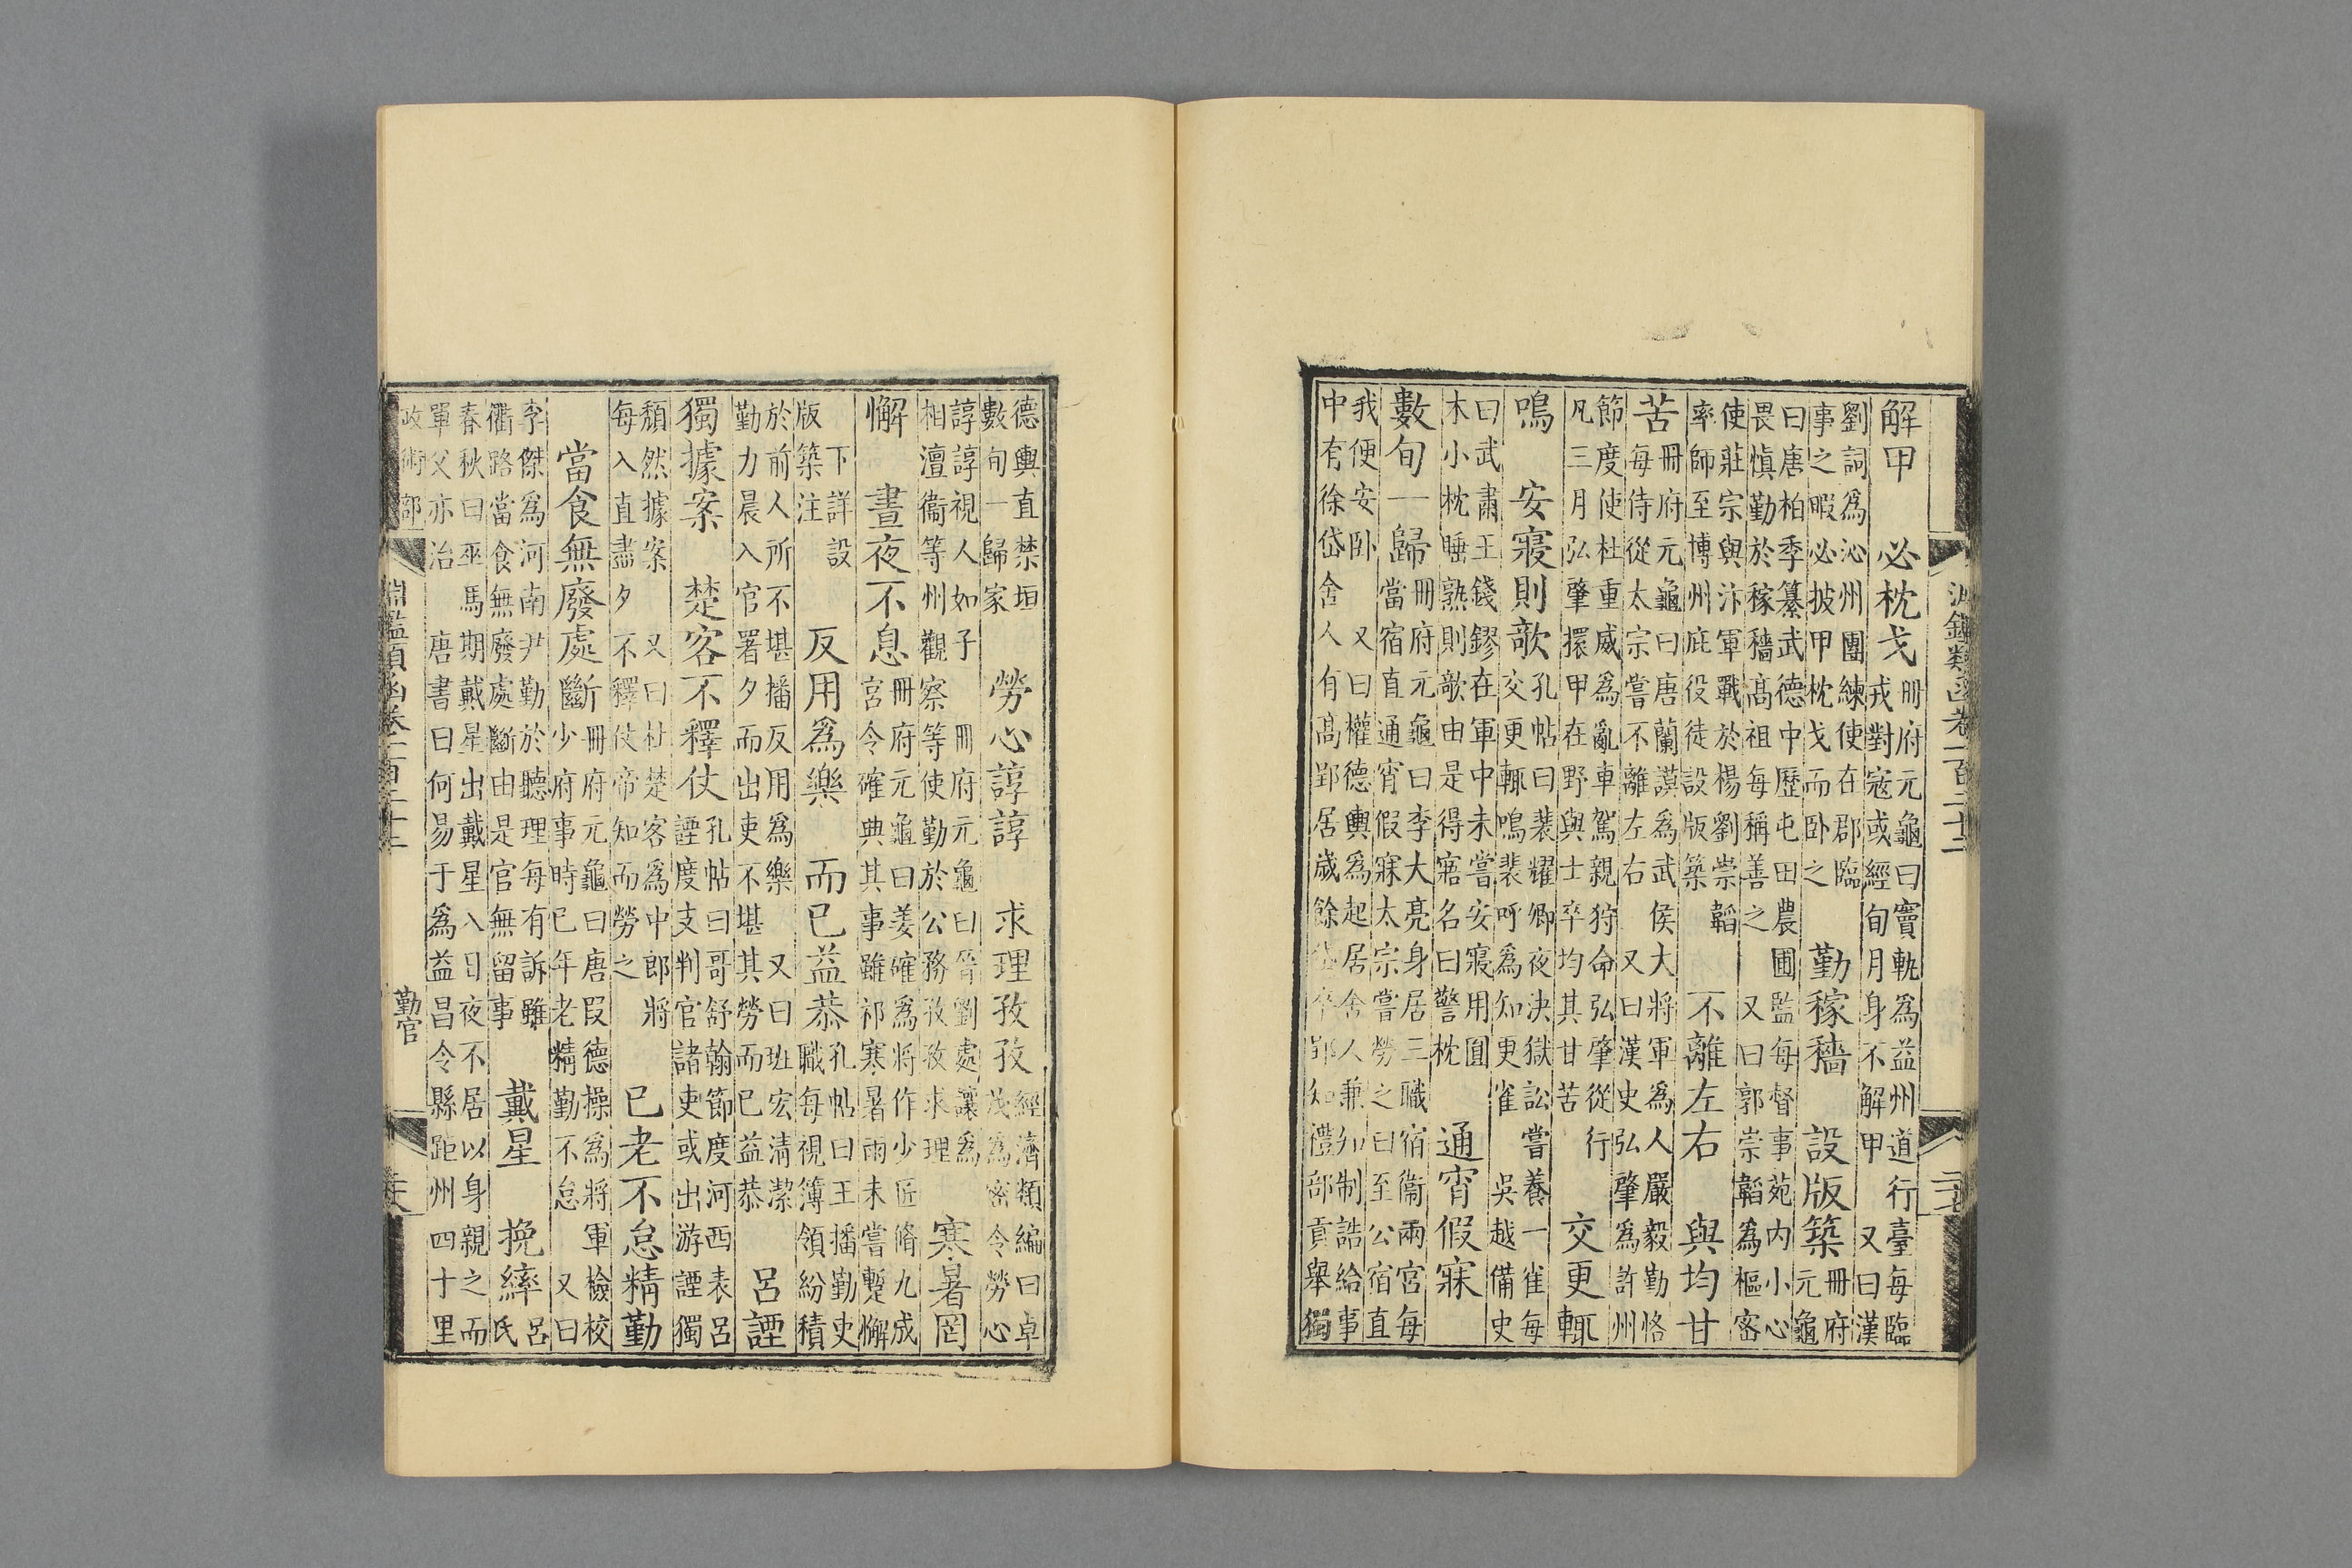 淵鑑類函卷一百二十二
解甲　必枕戈
冊府元龜曰竇軌為益州道行臺每臨
戎對寇或經旬月身不解甲　又曰漢
劉詞為沁州團練使在郡臨
事之暇必披甲枕戈而卧之
勤稼穡　設版築
冊府
元龜
曰唐柏季纂武德中歷屯田農圃監每督事苑内小心
畏愼勤於稼穡高祖每稱善之　又曰郭崇韜為樞密
使莊宗與汴軍戰於楊劉崇韜
率師至博州庇役徒設版築
不離左右　與均甘
苦
冊府元龜曰唐蘭謨為武侯大將軍為人嚴毅勤恪
每侍從太宗嘗不離左右　又曰漢史弘肇為許州
節度使杜重威為亂車駕親狩命弘肇從行
凡三月弘肇擐甲在野與士卒均其甘苦
交更輒
鳴　安寢則歌
孔帖曰裴耀卿夜決獄訟嘗養一雀每
交更輒鳴裴呼為知更雀　吳越備史
曰武肅王錢鏐在軍中未嘗安寢用圓
木小枕睡熟則欹由是得寤名曰警枕
通宵假寐
數旬一歸
冊府元龜曰李大亮身居三職宿衞兩宮每
當宿直通宵假寐太宗嘗勞之曰至公宿直
我便安卧　又曰權德輿為起居舍人兼知制誥給事
中有徐岱舍人有高郢居歲餘岱卒郢知禮部貢舉獨
德輿直禁垣
數旬一歸家
勞心諄諄　求理孜孜
經濟類編曰卓
茂為密令勞心
諄諄視人如子　冊府元龜曰晉劉處讓為
相澶衞等州觀察等使勤於公務孜孜求理
寒暑罔
懈　晝夜不息
冊府元龜曰姜確為將作少匠脩九成
宮令確典其事雖祁寒暑雨未嘗蹔懈
下詳設
版築注
反用為樂　而已益恭
孔帖曰王播勤吏
職每視簿領紛積
於前人所不堪播反用為樂　又曰班宏清潔
勤力晨入官署夕而出吏不堪其勞而已益恭
呂諲
獨據案　楚客不釋仗
孔帖曰哥舒翰節度河西表呂
諲度支判官諸吏或出游諲獨
頹然據案　又曰杜楚客為中郎將
每入直盡夕不釋仗帝知而勞之
已老不怠精勤
當食無廢處斷
冊府元龜曰唐叚德操為將軍檢校
少府事時已年老精勤不怠　又曰
李傑為河南尹勤於聽理每有訴雖
衢路當食無廢處斷由是官無留事
戴星　挽縴
呂
氏
春秋曰巫馬期戴星出戴星入日夜不居以身親之而
單父亦治　唐書曰何易于為益昌令縣距州四十里
政術部
淵鑑類函卷一百二十二
勤官